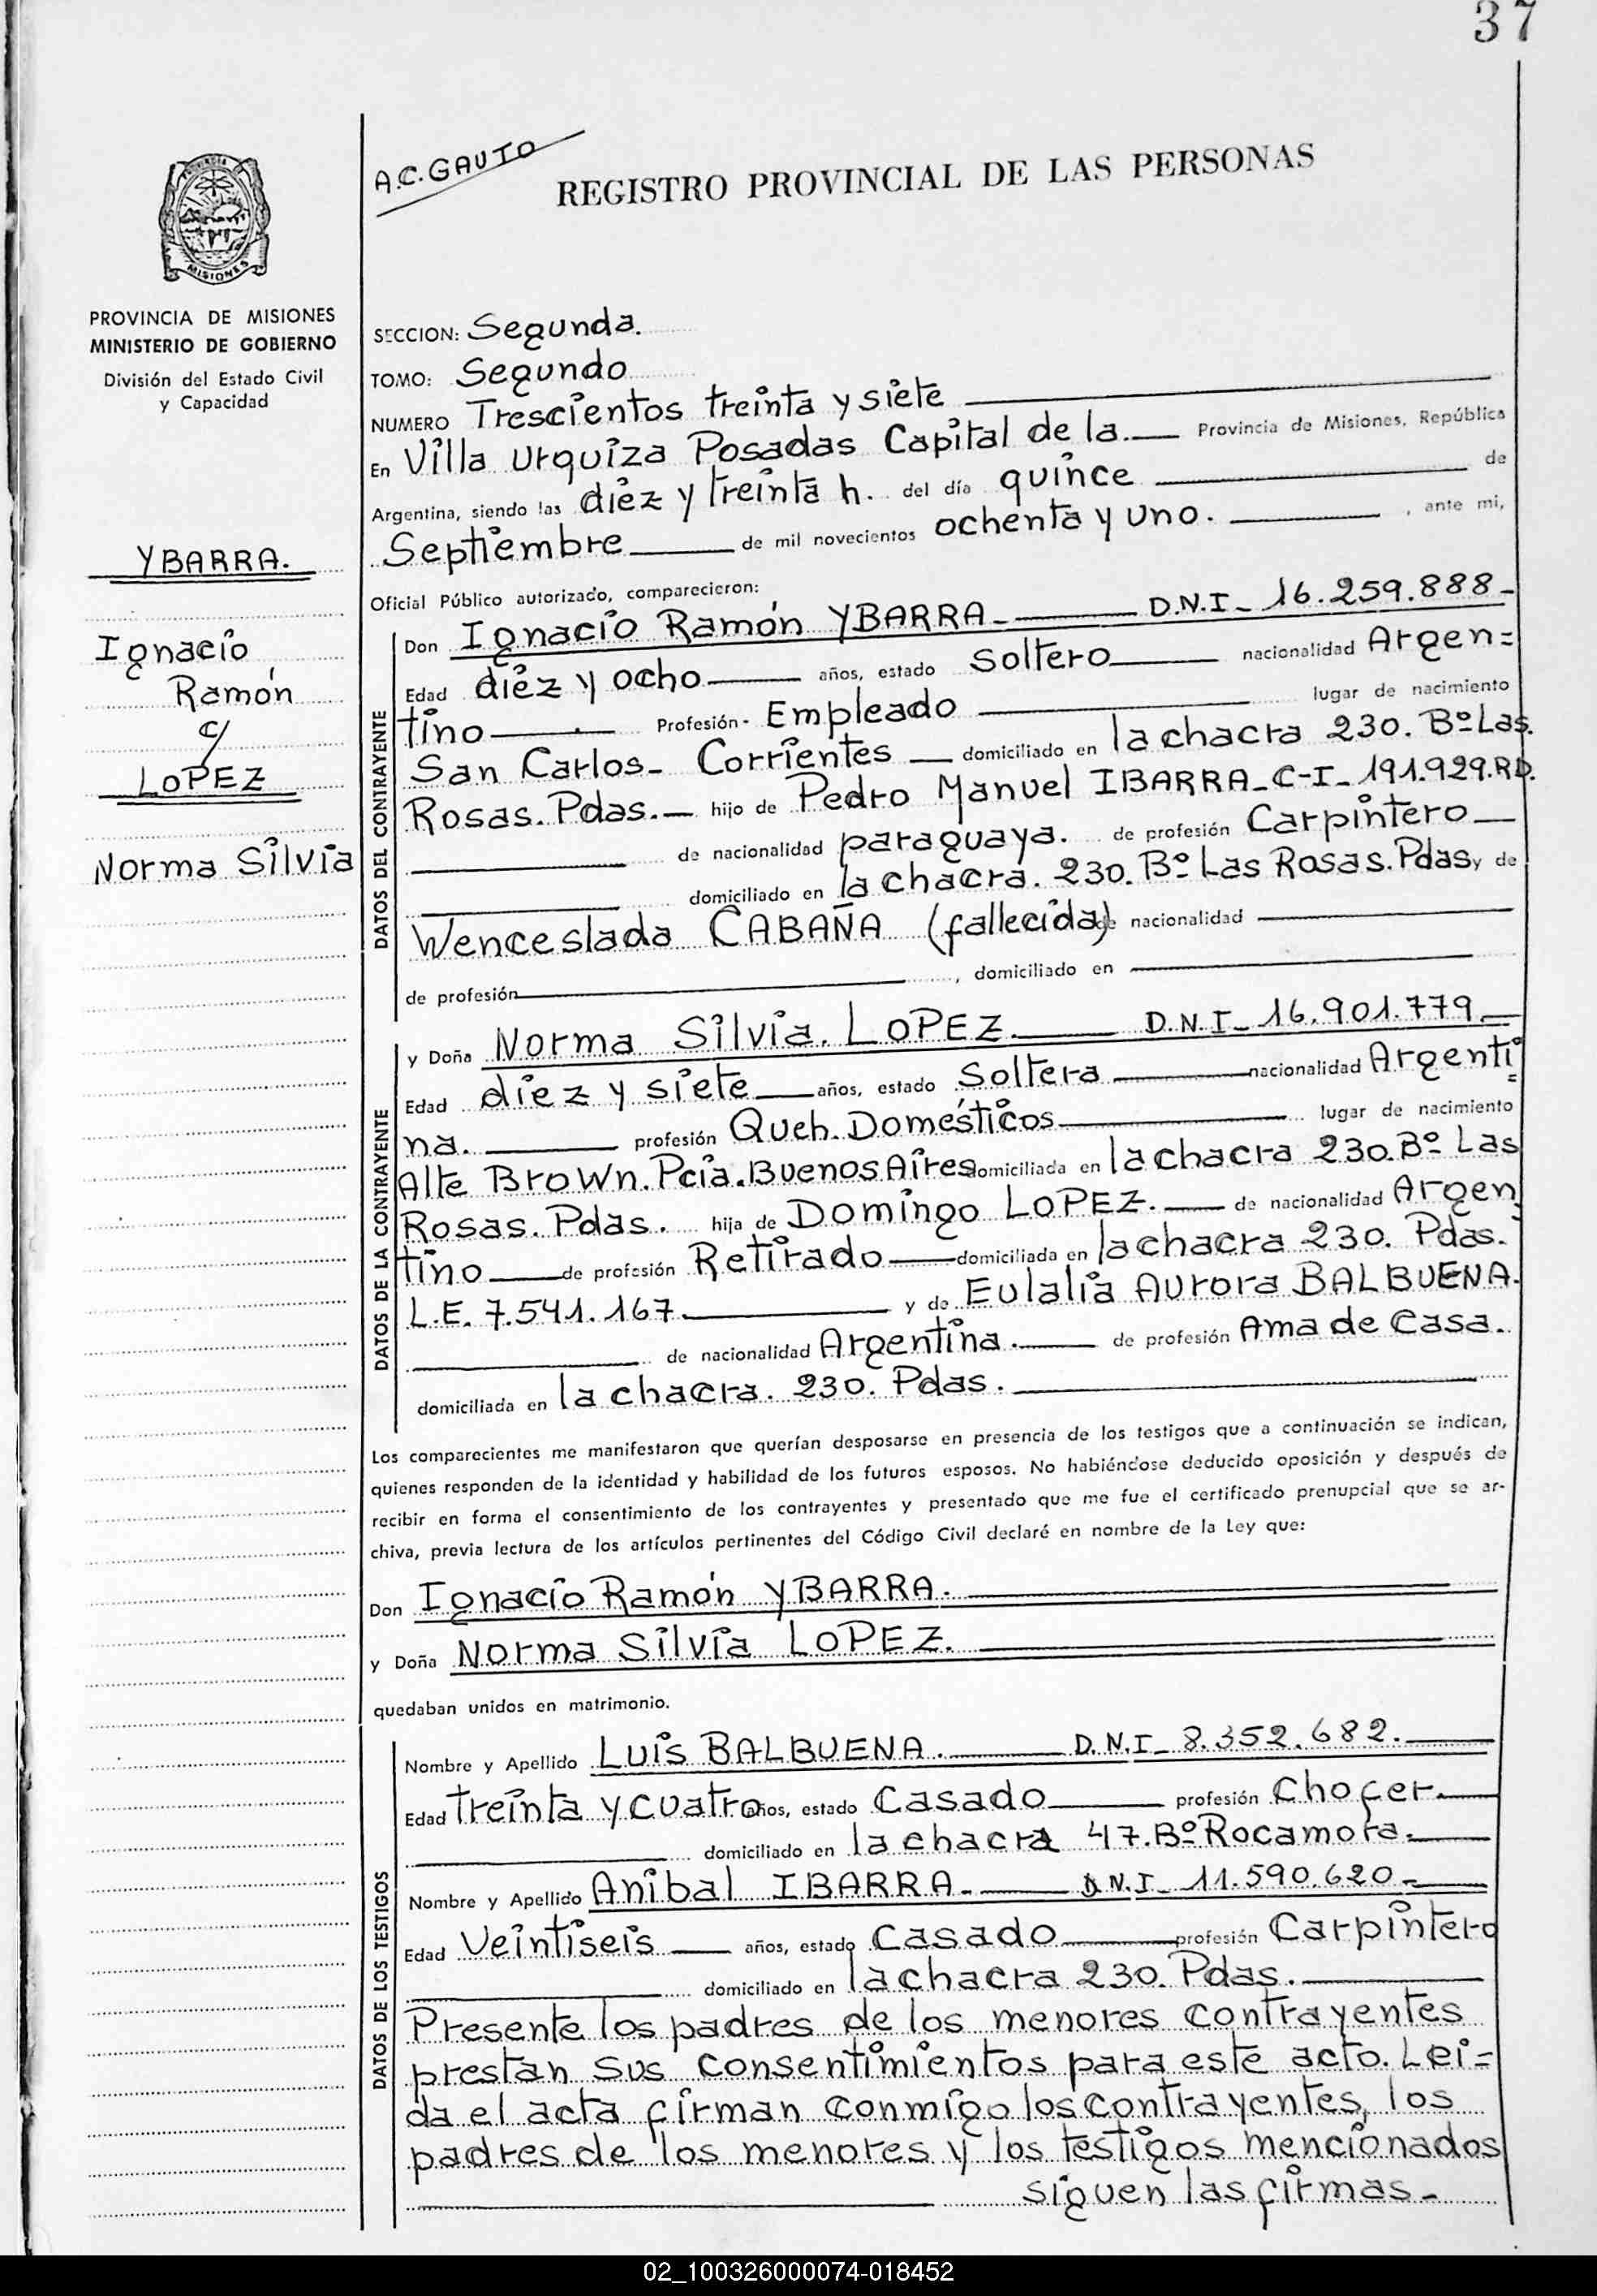 37
A.C. GAUTO
REGISTRO PROVINCIAL DE LAS PERSONAS
PROVINCIA
MISIONES
PROVINCIA DE MISIONES
MINISTERIO DE GOBIERNO
División del Estado Civil
y Capacidad
YBARRA.
Ignacio
Ramón
c/
LOPEZ
Norma Silvia
SECCION: Segunda.
TOMO: Segundo
NUMERO Trescientos treinta y siete
En Villa Urquiza Posadas Capital de la. Provincia de Misiones, República
Argentina, siendo las diéz y treinta h. del día quince de
Septiembre de mil novecientos ochenta y uno. , ante mi,
Oficial Público autorizado, comparecieron:
DATOS DEL CONTRAYENTE
Don Ignacio Ramón YBARRA.- D.N.I- 16.259.888-
Edad diéz y ocho años, estado Soltero nacionalidad Argen=
tino Profesión- Empleado lugar de nacimiento
San Carlos- Corrientes domiciliado en la chacra 230. Bº Las.
Rosas. Pdas.- hijo de Pedro Manuel IBARRA-C-I-191.929.RP.
de nacionalidad paraguaya. de profesión Carpintero
domiciliado en la chacra. 230. Bº Las Rosas. Pdas, y de
Wenceslada CABAÑA (fallecida) de nacionalidad
de profesión , domiciliado en
DATOS DE LA CONTRAYENTE
y Doña Norma Silvia. LOPEZ. D.N.I- 16.901.779-
Edad diez y siete años, estado Soltera nacionalidad Argenti=
na. profesión Queh. Domésticos lugar de nacimiento
Alte Brown. Pcia. Buenos Aires domiciliada en la chacra 230. Bº Las
Rosas. Pdas. hija de Domingo LOPEZ.- de nacionalidad Argen
tino de profesión Retirado domiciliada en la chacra 230. Pdas.
L.E. 7.541.167. y de Eulalia Aurora BALBUENA.
de nacionalidad Argentina. de profesión Ama de Casa.
domiciliada en la chacra. 230. Pdas.
Los comparecientes me manifestaron que querían desposarse en presencia de los testigos que a continuación se indican,
quienes responden de la identidad y habilidad de los futuros esposos. No habiéndose deducido oposición y después de
recibir en forma el consentimiento de los contrayentes y presentado que me fue el certificado prenupcial que se ar-
chiva, previa lectura de los artículos pertinentes del Código Civil declaré en nombre de la Ley que:
Don Ignacio Ramón YBARRA.
y Doña Norma Silvia LOPEZ.
quedaban unidos en matrimonio.
DATOS DE LOS TESTIGOS
Nombre y Apellido Luis BALBUENA. D.N.I- 8.352.682.
Edad treinta y cuatro años, estado Casado profesión Chofer.
domiciliado en la chacra 47. Bº Rocamora.
Nombre y Apellido Anibal IBARRA.- D.N.I- 11.590.620.-
Edad Veintiseis años, estado Casado profesión Carpintero
domiciliado en la chacra 230. Pdas.
Presente los padres de los menores contrayentes
prestan sus consentimientos para este acto. Lei=
da el acta firman conmigo los contrayentes, los
padres de los menores y los testigos mencionados
siguen las firmas.-
02_100326000074-018452